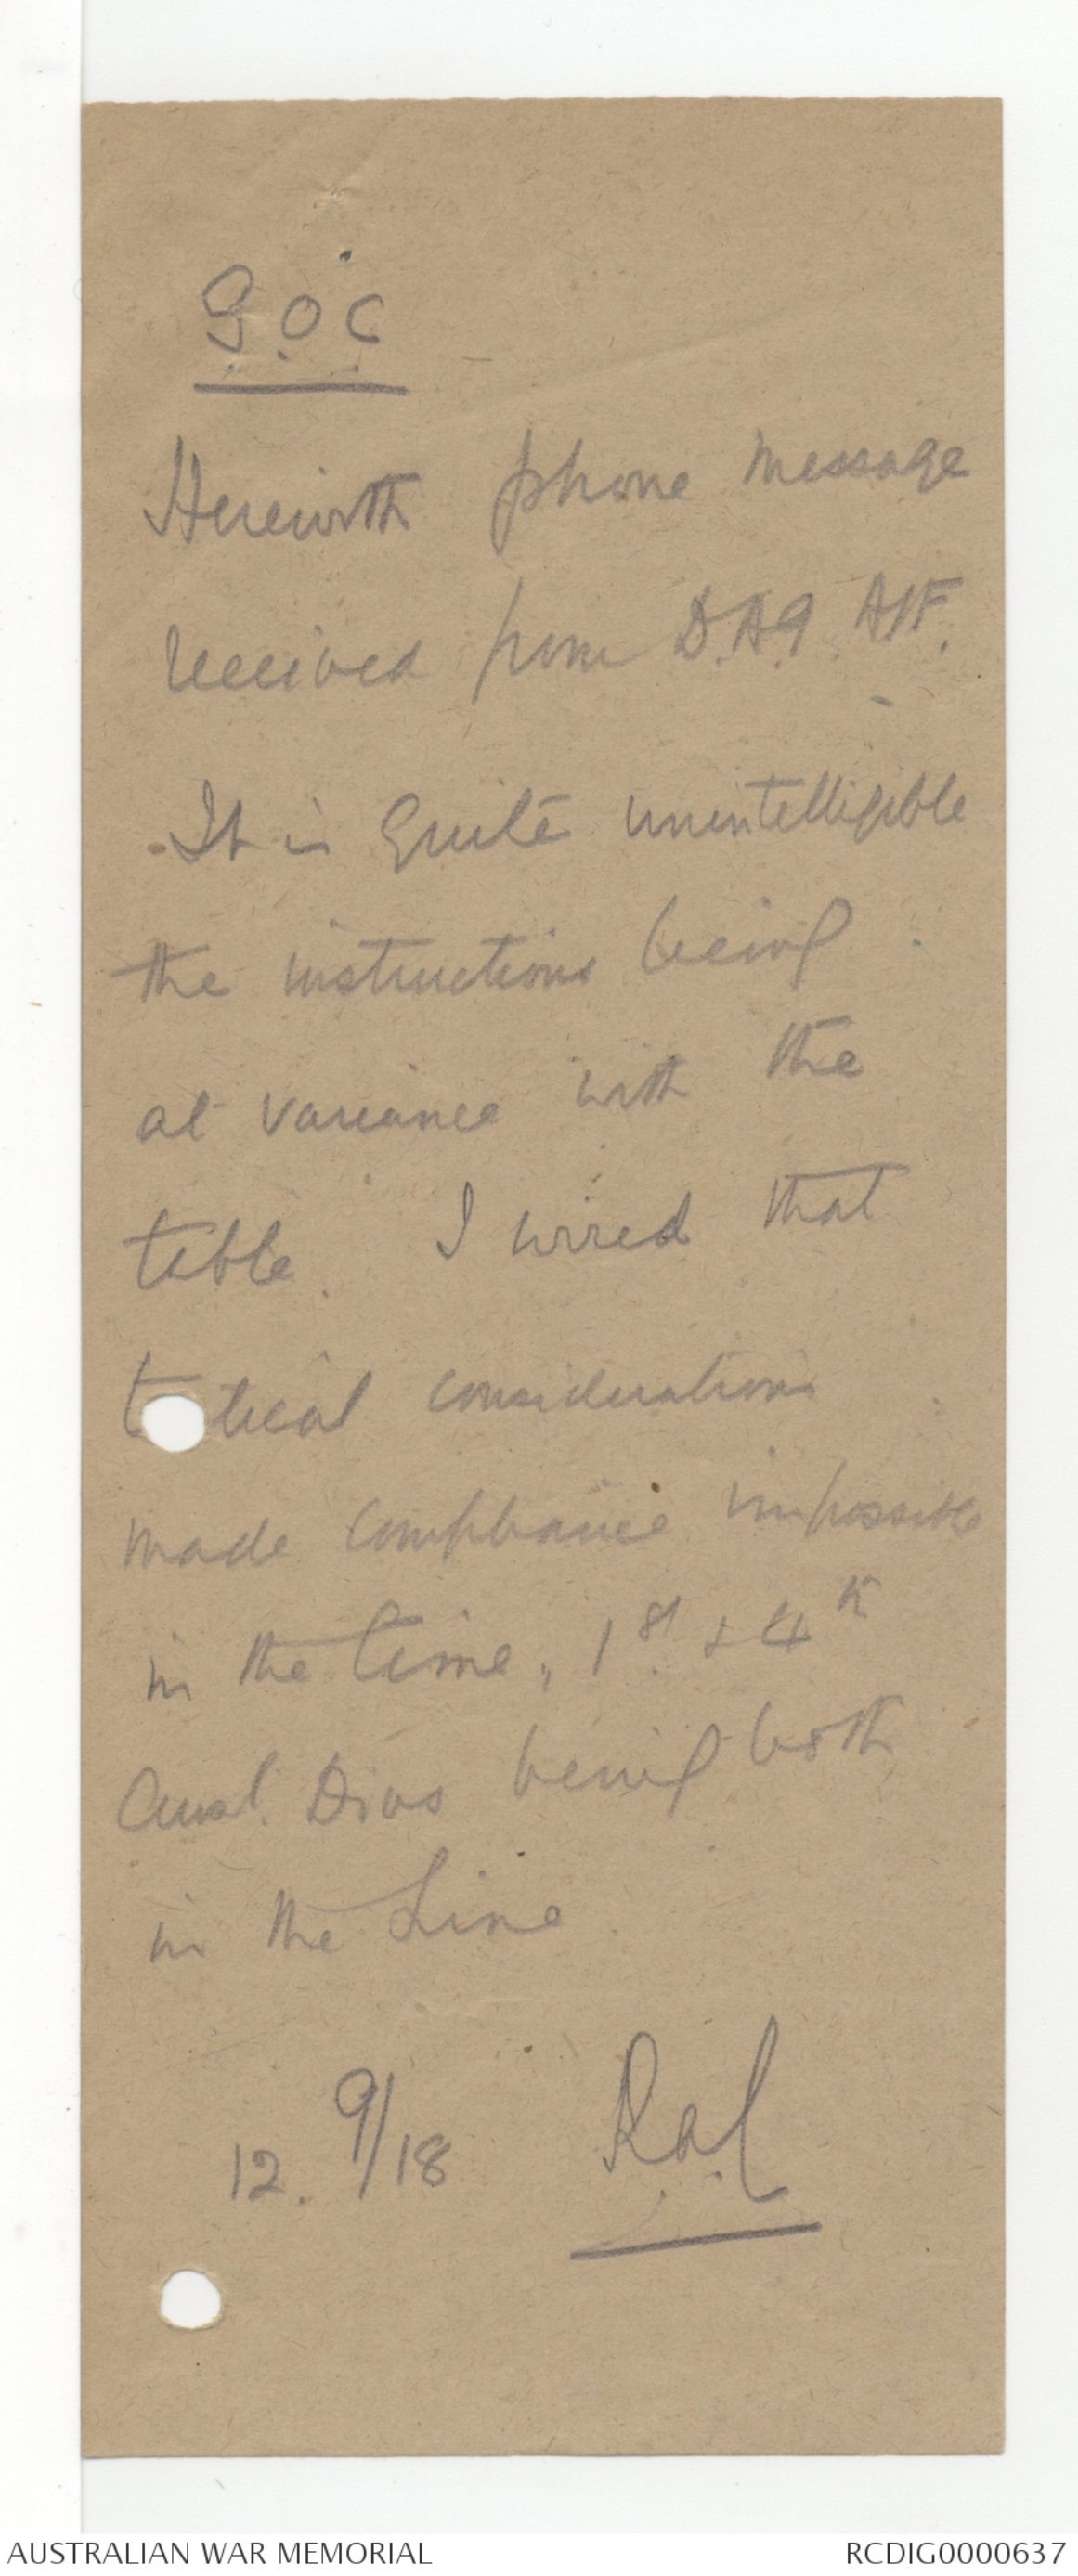 G.O.C
Herewith phone message
received from D.A.G. AIF.
It is quite unintelligible
the instructions being
at variance with the
table. I wired that
tactical considerations
made compliance impossible
in the time, 1st & 4th
Aust. Divs being both
in the Line.
12. 9/18
AUSTRALIAN WAR MEMORIAL
RCDIG0000637